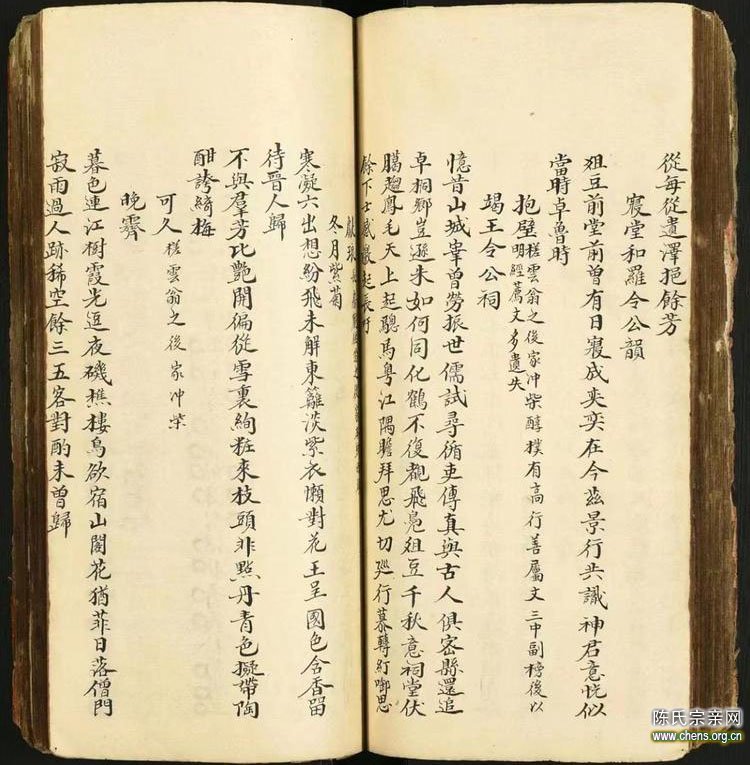 從每從遺澤挹餘芳
寢堂和羅令公韻
俎豆前堂前曾有日寢成奕奕在今茲景行共識神君意恍似
當時卓魯時
抱璧槎雲翁之後家冲柴醇樸有高行善屬文三中副榜後以
明經薦文多遺失
謁王令公祠
憶昔山城辜曾勞振世儒試尋循吏傳真與古人俱密縣還追
卓桐鄉豈遜朱如何同化鶴不復覩飛鳧俎豆千秋意祠堂伏
臘趨鳧毛天上起驄馬粵江隅瞻拜思尤切巡行慕轉紆啣思
餘下士感激起長吁
冬月紫菊
寒凝六出想紛飛未解東籬淡紫衣懶對花王呈國色含香留
待晉人歸
不與羣芳比艷開偏從雪裏絢粧來枝頭非點丹青色擬帶陶
酣誇綺梅
可久槎雲翁之後家冲柴
晚霽
暮色連江樹霞光逗夜磯樵樓鳥欲宿山閣花猶菲日落僧門
寂雨過人跡稀空餘三五客對酌未曾歸
陈氏宗亲网
www.chens.org.cn